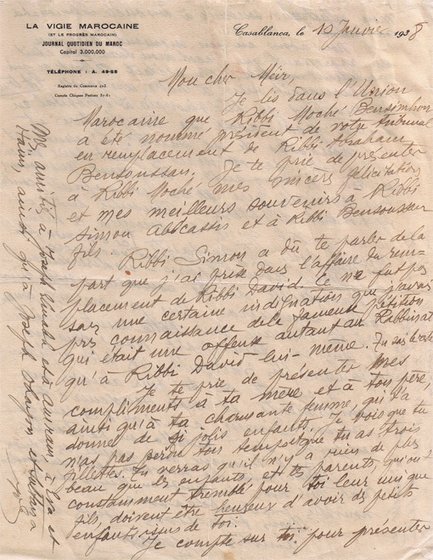 LA VIGIE MAROCAINE
(ET LE PROGRÈS MAROCAIN)
JOURNAL QUOTIDIEN DU MAROC
Capital 3.000.000
TÉLÉPHONE : A. 49-28
Registre du Commerce
Compte Chèques Postaux
Casablanca, le 10 Janvier 1938
Mon cher Méir,
Je lis dans l'Union
Marocaine que Ribbi Moché Bensimhon
a été nommé président de votre tribunal
en remplacement de Ribbi Abraham
Bensoussan. Je te prie de présenter
à Ribbi Moché mes sincères félicitations
et mes meilleurs souvenirs à Ribbi
Simon Abecassis et à Ribbi Bensoussan
fils.
Ribbi Simon a dû te parler de la
part que j'ai prise dans l'affaire du rem-
placement de Ribbi David. Ce ne fut pas
sans une certaine indignation que j'avais
pris connaissance de la fameuse pétition
qui était une offense autant au Rabbinat
qu'à Ribbi David lui-même.
Je te prie de présenter mes
compliments à ta mère et à ton père,
ainsi qu'à ta charmante femme, qui t'a
donné de si jolis enfants. Je vois que tu
n'as pas perdu ton temps et que tu as trois
fillettes. Tu verras qu'il n'y a rien de plus
beau que les enfants, et tes parents, qui ont
constamment tremblé pour toi leur unique
fils, doivent être heureux d'avoir des petits
enfants issus de toi.
Je compte sur toi pour présenter
Mes amitiés à Joseph
ainsi qu'à Joseph